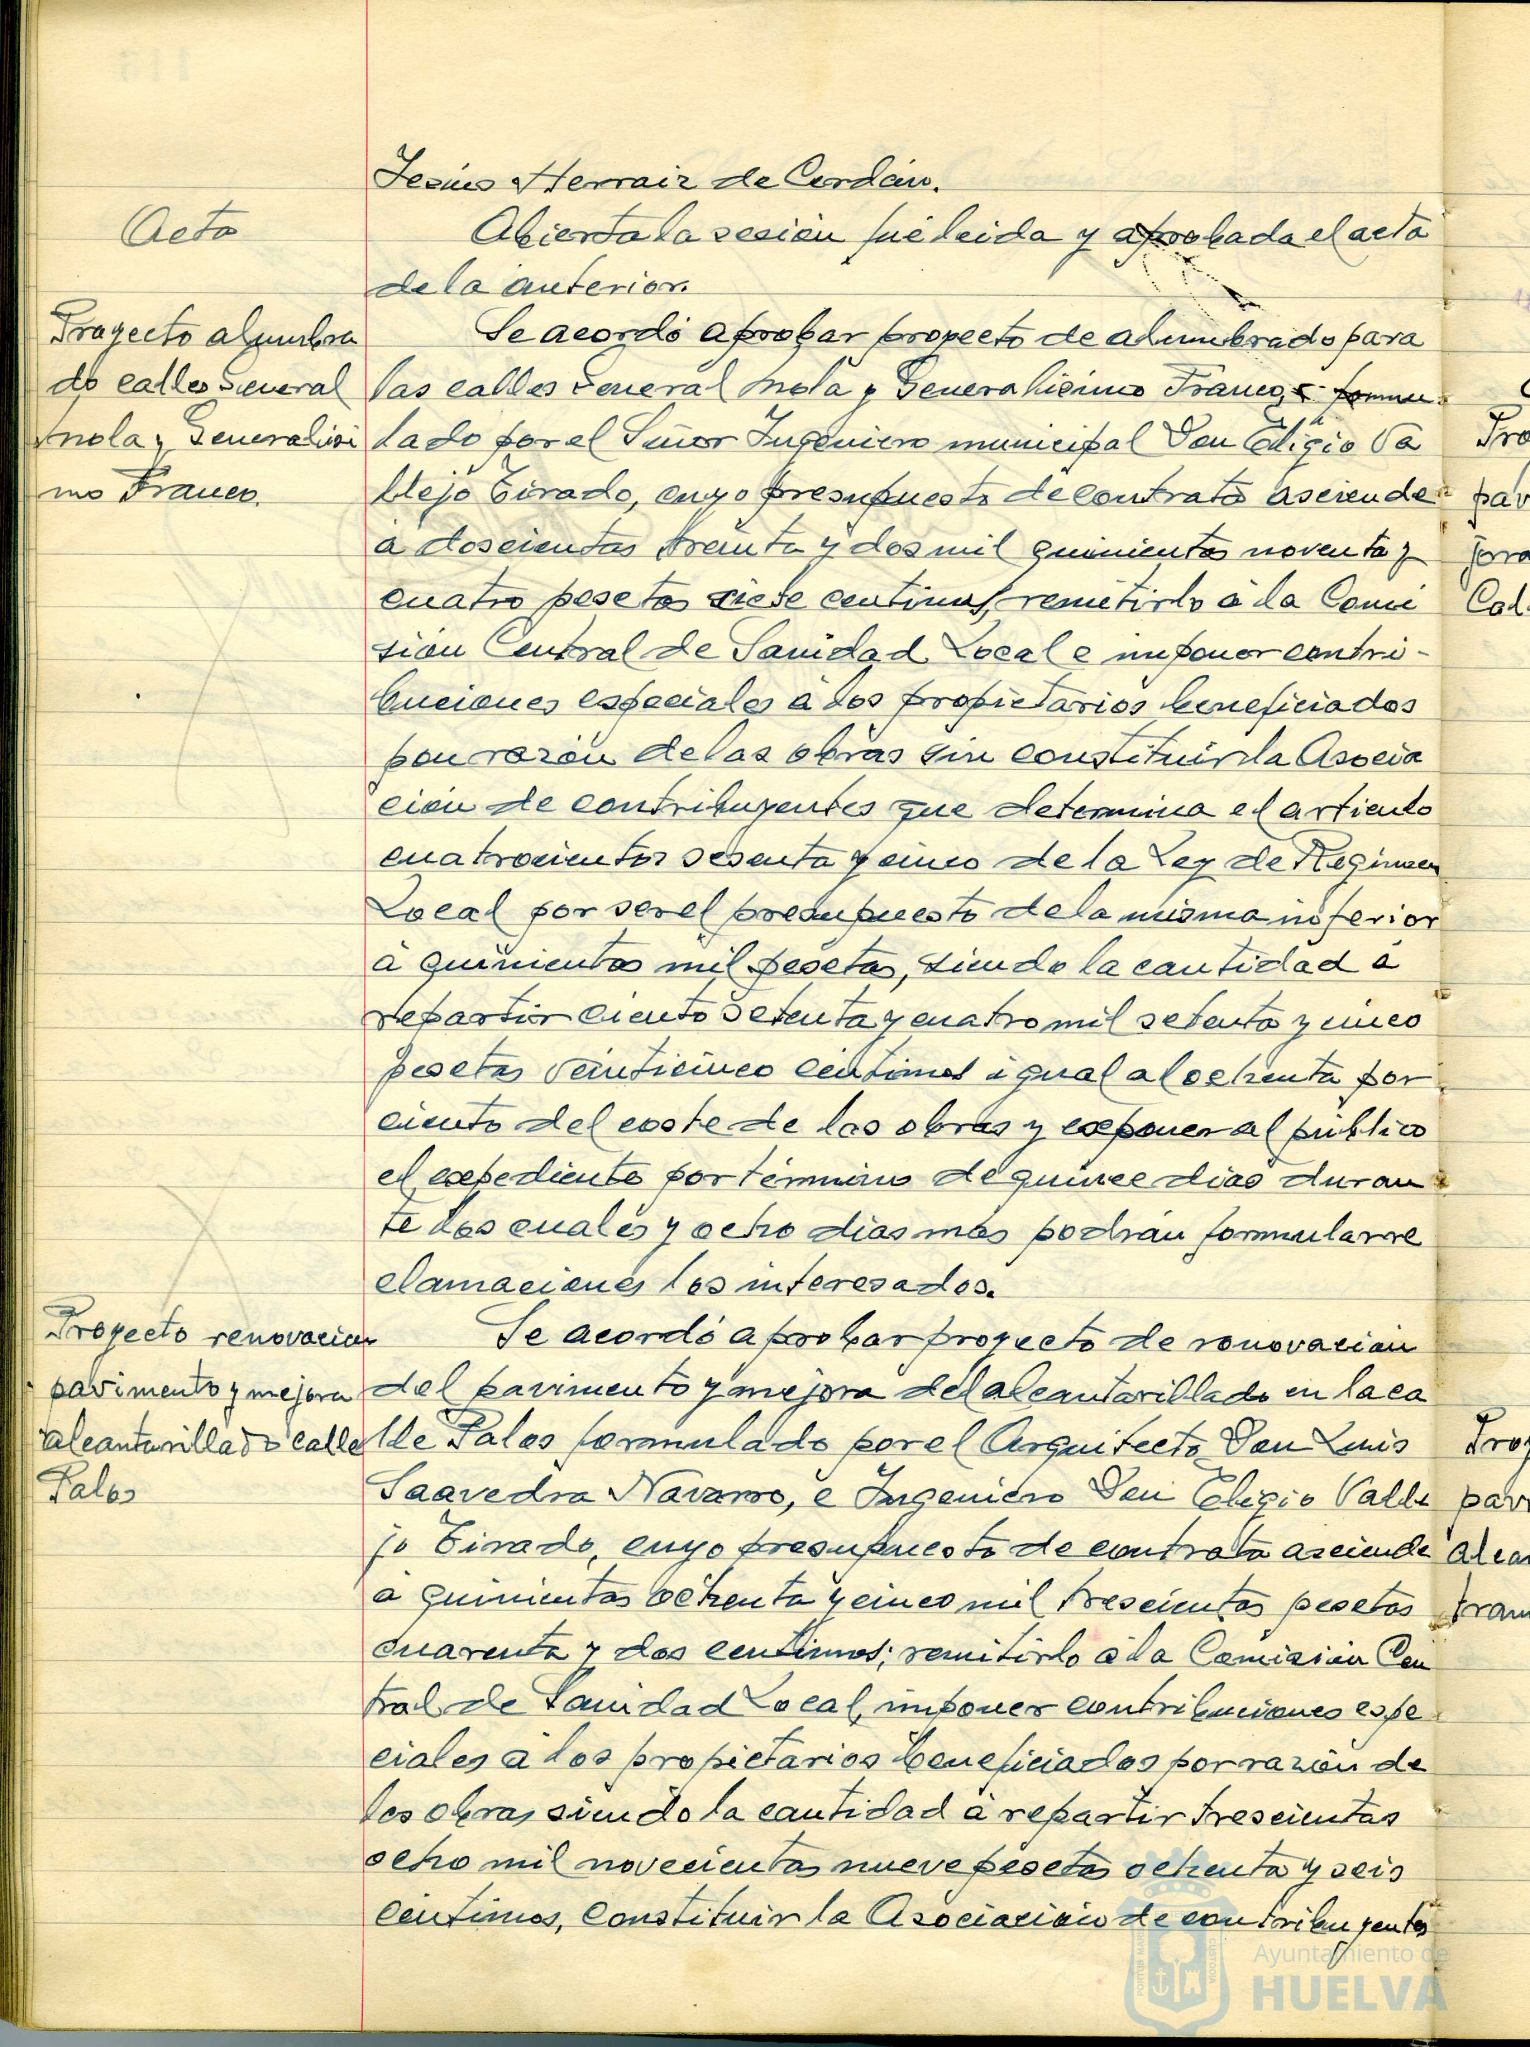 Jesús Herraiz de Cerdán.
Acta
Abierta la sesión fué leida y aprobada el acta
de la anterior.
Proyecto alumbra
do calles General
Mola y Generalísi
mo Franco.
Se acordó aprobar proyecto de alumbrado para
las calles General Mola y Generalisimo Franco, formu
lado por el Señor Ingeniero municipal Don Eligio Va
llejo Tirado, cuyo presupuesto de contrata asciende
á doscientas treinta y dos mil quinientas noventa y
cuatro pesetas siete centimos, remitirlo á la Comi
sión Central de Sanidad Local e imponer contri-
buciones especiales á los propietarios beneficiados
por razón de las obras sin constituir la Asocia
ción de contribuyentes que determina el articulo
cuatrocientos sesenta y cinco de la Ley de Regimen
Local por ser el presupuesto de la misma inferior
á quinientas mil pesetas, siendo la cantidad á
repartir ciento setenta y cuatro mil setenta y cinco
pesetas veinticinco centimos igual al ochenta por
ciento del coste de las obras y exponer al público
el expediente por término de quince dias duran
te los cuales y ocho dias mas podrán formular re
clamaciones los interesados.
Proyecto renovacion
pavimento y mejora
alcantarillado calle
Palos
Se acordó aprobar proyecto de renovación
del pavimento y mejora del alcantarillado en la ca
lle Palos formulado por el Arquitecto Don Luis
Saavedra Navarro, e Ingeniero Don Eligio Valle
jo Tirado, cuyo presupuesto de contrata asciende
á quinientas ochenta y cinco mil trescientas pesetas
cuarenta y dos centimos; remitirlo á la Comisión Cen
tral de Sanidad Local, imponer contribuciones espe
ciales á los propietarios beneficiados por razón de
las obras siendo la cantidad á repartir trescientas
ocho mil novecientas nueve pesetas ochenta y seis
centimos, constituir la Asociación de contribuyentes
Pro
pav
jora
Cal
Proy
pavi
alcan
tram
Ayuntamiento de
HUELVA